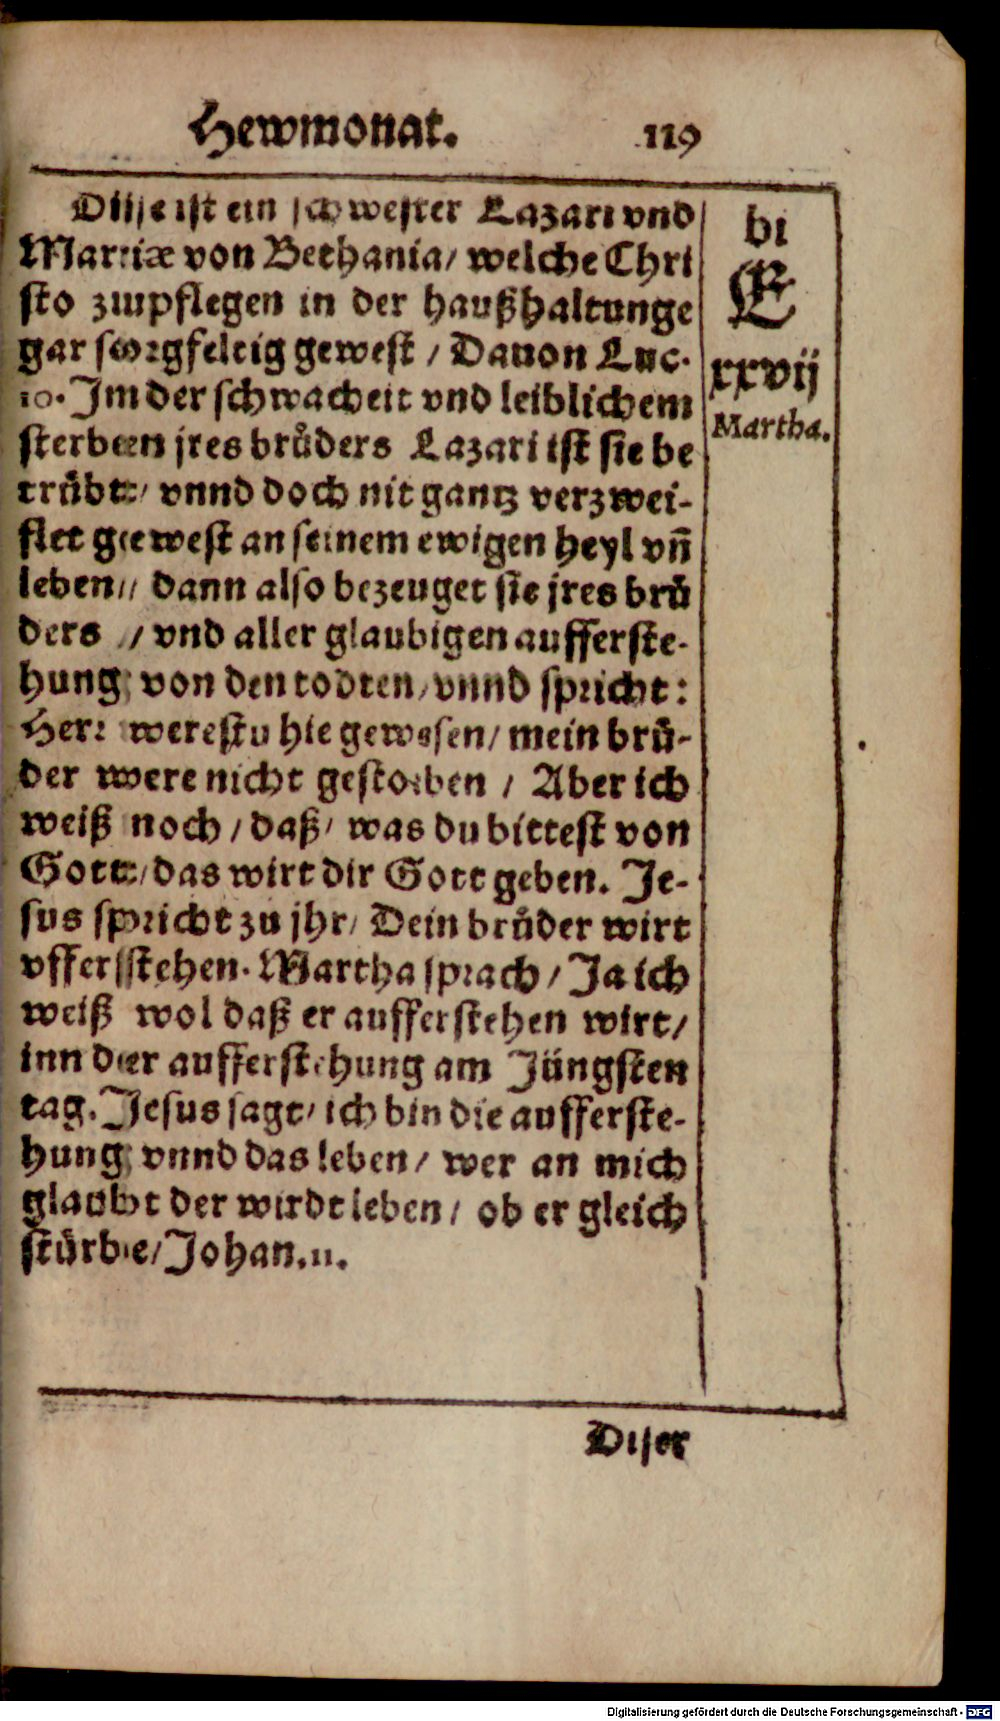 Hewmonat. 119
Dise ist ein schwester Lazari vnd
Mariæ von Bethania/ welche Chri
sto zupflegen in der haußhaltunge
gar sorgfeltig gewest / Dauon Luc.
10. Im der schwacheit vnd leiblichem
sterben jres brůders Lazari ist sie be
trůbt/ vnnd doch nit gantz verzwei-
flet gewest an seinem ewigen heyl vñ
leben/ dann also bezeuget sie jres brů
ders / vnd aller glaubigen aufferste-
hung von den todten/ vnnd spricht:
Herr werestu hie gewesen/ mein brů-
der were nicht gestorben / Aber ich
weiß noch / daß/ was du bittest von
Gott/ das wirt dir Gott geben. Je-
sus spricht zu jhr/ Dein brůder wirt
vfferstehen. Martha sprach / Ja ich
weiß wol daß er aufferstehen wirt/
inn der aufferstehung am Jüngsten
tag. Jesus sagt/ ich bin die aufferste-
hung vnnd das leben/ wer an mich
glaubt der wirdt leben/ ob er gleich
stürbe/ Johan. 11.
bi
E
xxvij
Martha.
Diser
Digitalisierung gefördert durch die Deutsche Forschungsgemeinschaft - DFG